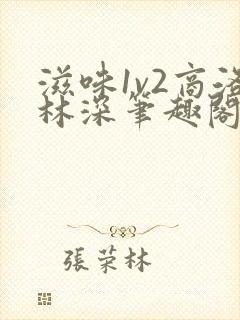 滋味1v2高洛
林深笔趣阁
張荣林